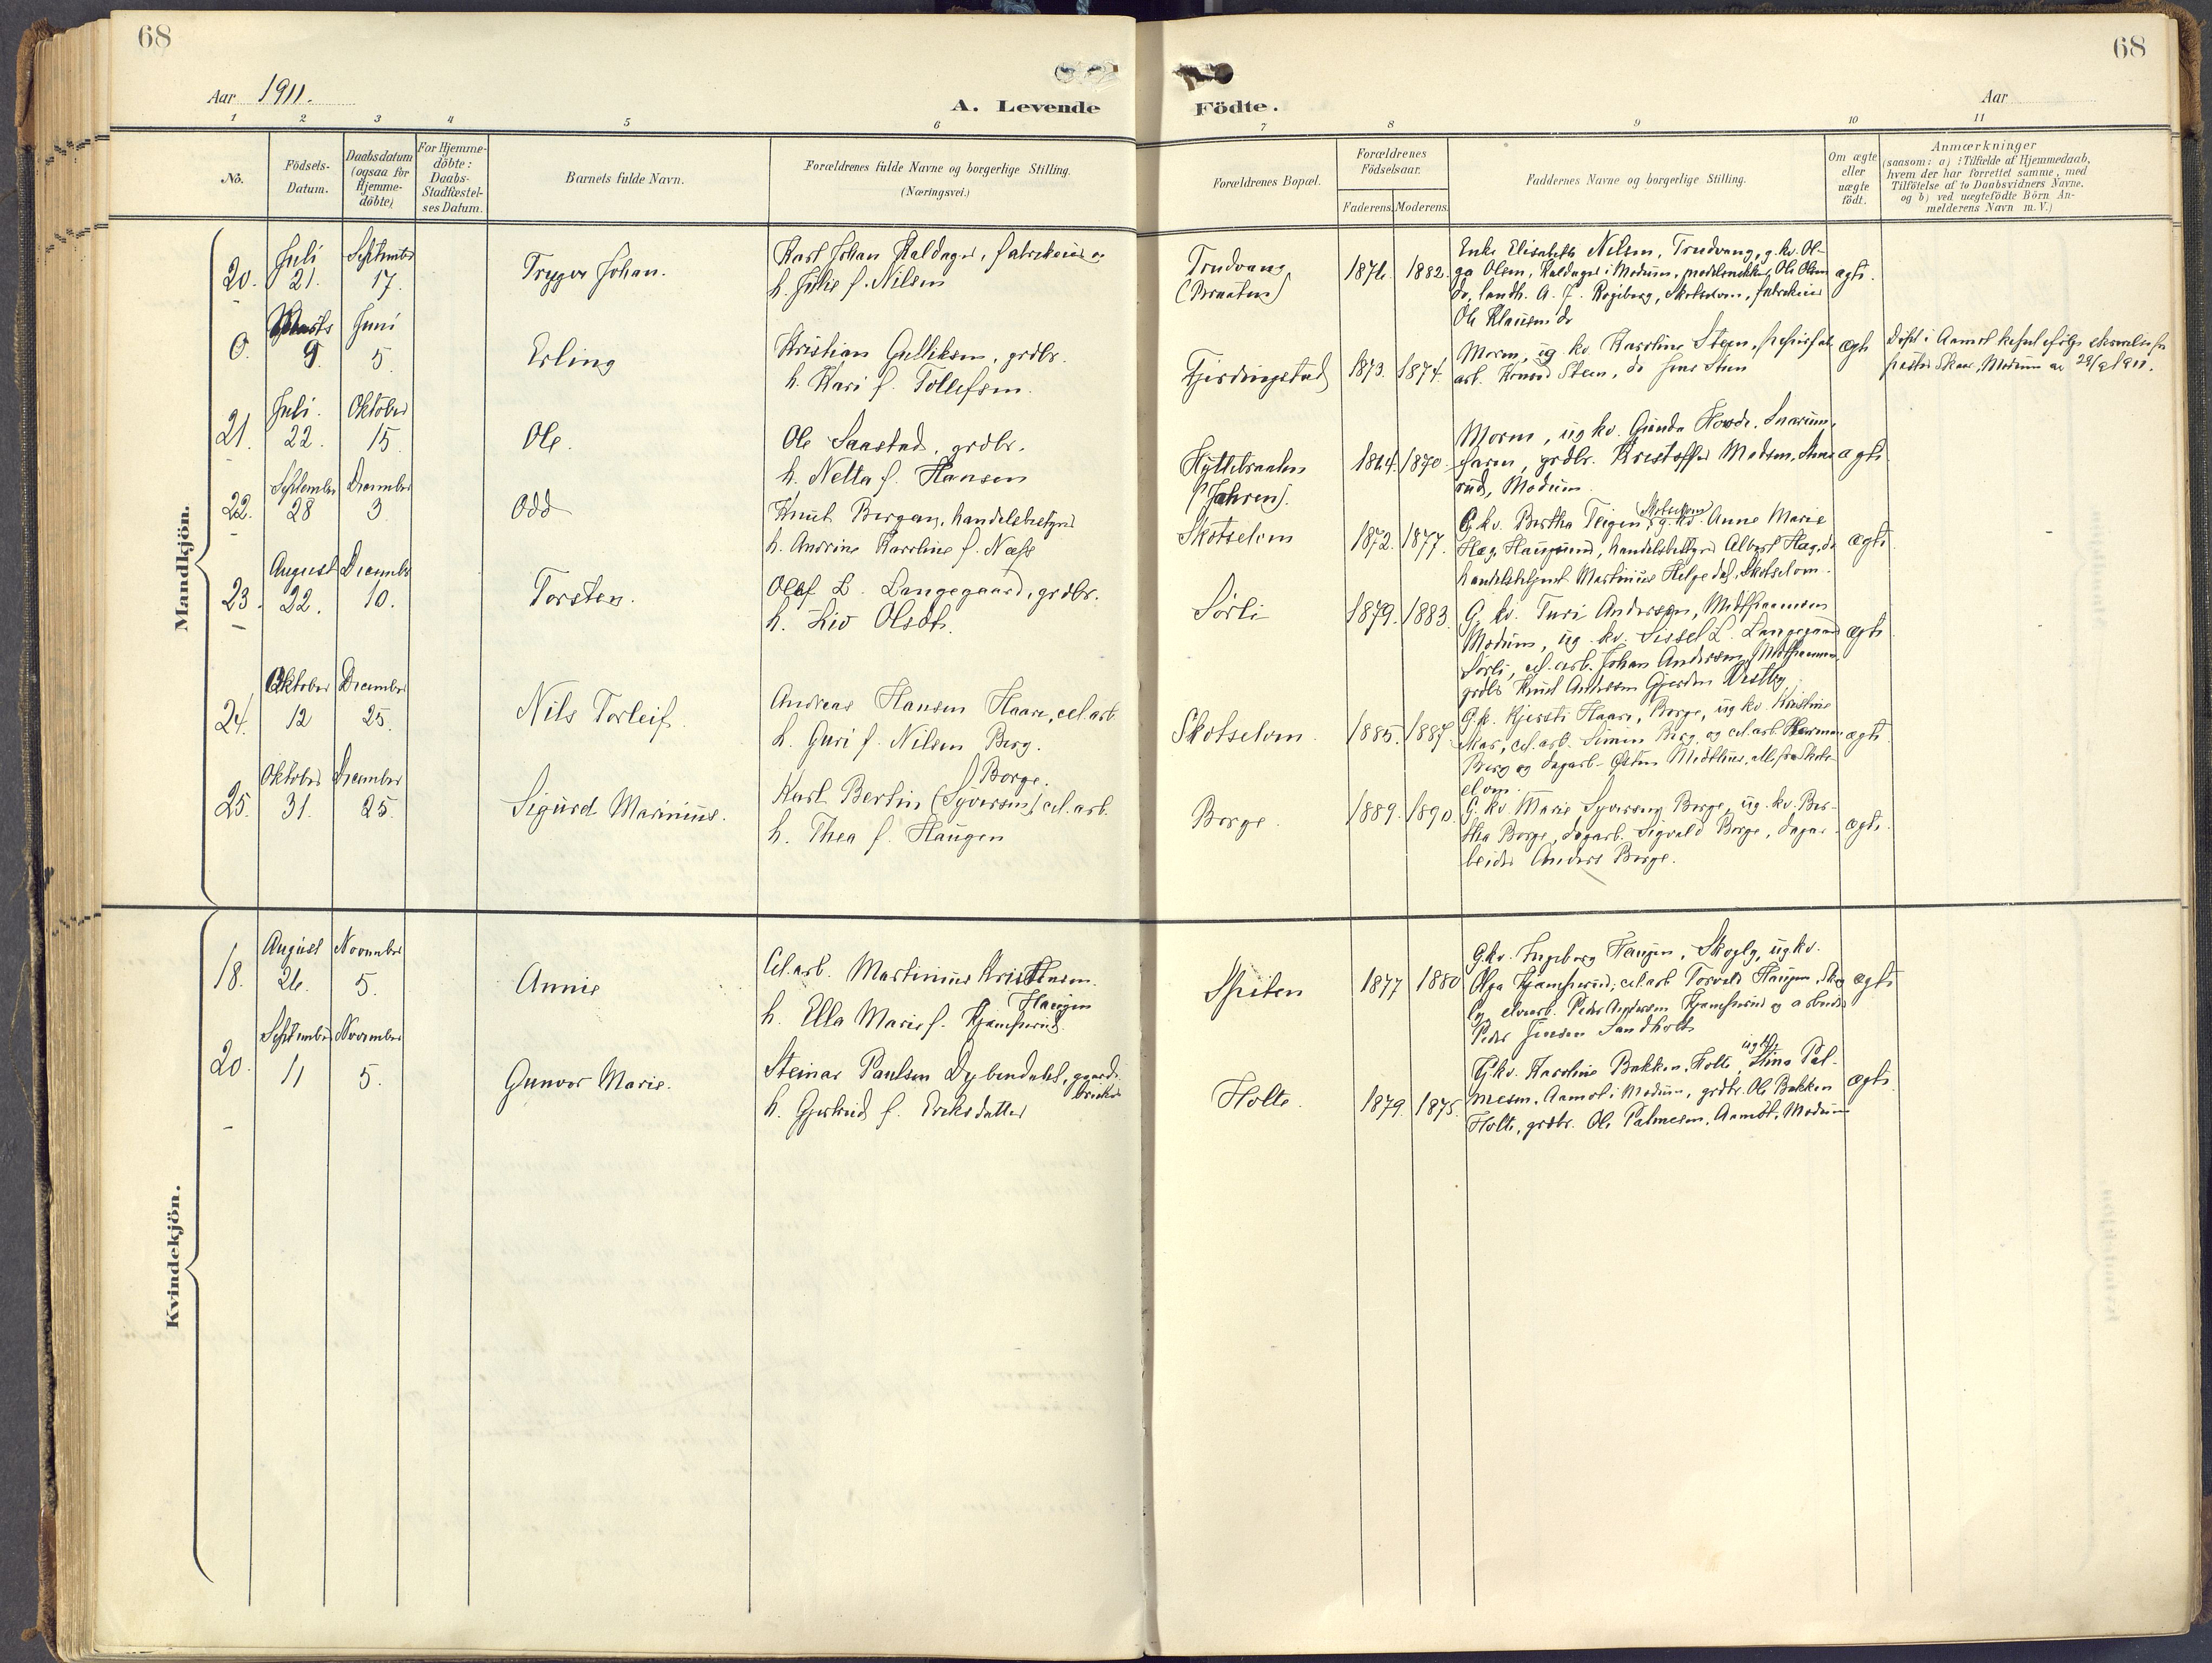 68
68
Aar 1911.
A. Levende Födte.
Aar
1 2 3 4 5 6 7 8 9 10 11
Nó.
Födsels-
Datum.
Daabsdatum
(ogsaa for
Hjemme-
döbte)
For Hjemme-
döbte:
Daabs-
Stadfæstel-
ses Datum.
Barnets fulde Navn.
Forældrenes fulde Navne og borgerlige Stilling.
(Næringsvei.)
Forældrenes Bopæl.
Forældrenes
Födselsaar.
Faderens. Moderens.
Faddernes Navne og borgerlige Stilling.
Om ægte
eller
uægte
födt.
Anmærkninger
(saasom: a) i Tilfælde af Hjemmedaab,
hvem der har forrettet samme, med
Tilföielse af to Daabsvidners Navne,
og b) ved uægtefödte Börn An-
melderens Navn m. V.)
Mandkjön.
20.
Juli
21.
September
17.
Trygve Johan.
Karl Johan Kaldager, fabrikeier
h. Julie f. Nilsen
Trudvang
(Braaten)
1876. 1882.
Enke Elisabeth Nilsen, Trudvang, g. kv. Ol-
ga Olsen, Kaldager i Modum, Ole Olsen
do, landh. A. J. Rogeberg, Skotselven, fabrikeier
Ole Klausen do
ægte.
0.
Marts
9
Juni
5.
Erling
Kristian Gulliksen, grdbr.
h. Kari f. Tollefsen.
Gjerdingstad
1873. 1874.
Moren, ug. kv. Karoline Steen,
arb. Steen, do Jens Steen
ægte
Döbt i Aamot kapel ifölge
Skar, Modum av 29/2 1911.
21.
Juli.
22.
Oktober
15.
Ole.
Ole Saastad, grdbr.
h. Netta f. Hansen
Hyttebraaten
(Jahren).
1864. 1870.
Moren, ug kv. Gunda Hovde, Snarum,
faren, grdbr. Kristoffer Madsen,
rud, Modum.
ægte
22.
September
28
December
3
Odd
Knut Bergan, handelsbestyrer
h. Andrine Karoline f. Næss
Skotselven
1872. 1877.
G. kv. Bertha Teigen, Skotselven, g. kv. Anne Marie
Hæg, Haugsund, handelsbestyrer Albert Hæg, do
handelsbetjent Martinius Helgedal, Skotselven.
ægte
23.
August
22.
December
10.
Torsten.
Olaf L. Langegaard, grdbr.
h. Liv Olsdtr.
Sørli
1879. 1883.
G. kv. Turi Andersen,
Modum, ug. kv. Sissel L. Langegaard
Sørli, cel. arb. Johan Andersen,
grdbr Knut Andersen Gjerden Vestby
ægte
24.
Oktober
12
December
25.
Nils Torleif.
Andreas Hansen Haare, cel. arb
h. Guri f. Nilsen Berg.
Skotselven.
1885. 1887
G. k. Kjersti Haare, Borge, ug kv. Kristine
Skar, cel. arb. Simen Berg, og cel. arb. Herman
Berg og dagarb. Østen Midtlien, alle fra Skots-
elven.
ægte
25.
Oktober
31.
December
25.
Sigurd Marinius.
Borge.
Karl Bertin (Syversen) cel. arb.
h. Thea f. Haugen
Borge.
1889. 1890.
G. kv Marie Syversen Borge, ug. kv. Ber-
tha Borge, dagarb. Sigvald Borge, dagar-
beider Anders Borge.
ægte.
Kvindekjön.
18.
August
26.
November
5.
Annie
Cel. arb. Martinius Kristensen.
Haugen
h. Ella Marie f. Kjamperud.
Spiten
1877 1880
G. kv. Ingeborg Haugen, Skogly, ug kv.
Olga Kjamperud, cel. arb Torvald Haugen, Skog
ly, elvearb. Peder Andersen Kjamperud og arbeider
Peder Jensen Sandholt
ægte
20.
September
11
November
5.
Gunvor Marie.
Steinar Paulsen Dybendahl, gaard-
bruker
h. Gjertrud f. Eriksdatter
Holte.
1879. 1875.
G. kv. Karoline Bakken, Holte, ug kv. Stina Pal-
mesen, Aamot i Modum, grdbr. Ole Bakken
Holte, grdbr. Ole Palmesen, Aamot, Modum
ægte.